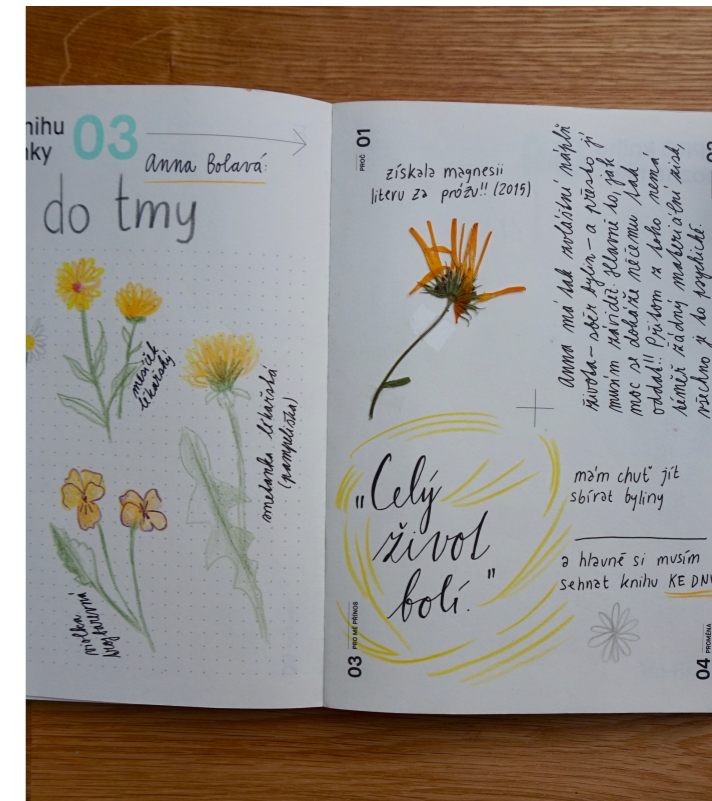 nihu
nky
03
Anna Bolavá:
do tmy
měsíček
lékařský
smetanka lékařská
(pampeliška)
violka
trojbarevná
PROČ 01
získala magnesii
literu za prózu!! (2015)
Anna má tak zvláštní náplň
života – sběr bylin – a přesto jí
musím závidět. Hlavně to, jak
moc se dokáže něčemu tak
oddat!! Přitom z toho nemá
téměř žádný materiální zisk,
všechno je to psychické.
„Celý
život
bolí."
03 PRO MĚ PŘÍNOS
mám chuť jít
sbírat byliny
a hlavně si musím
sehnat knihu KE DNU
04 PROMĚNA